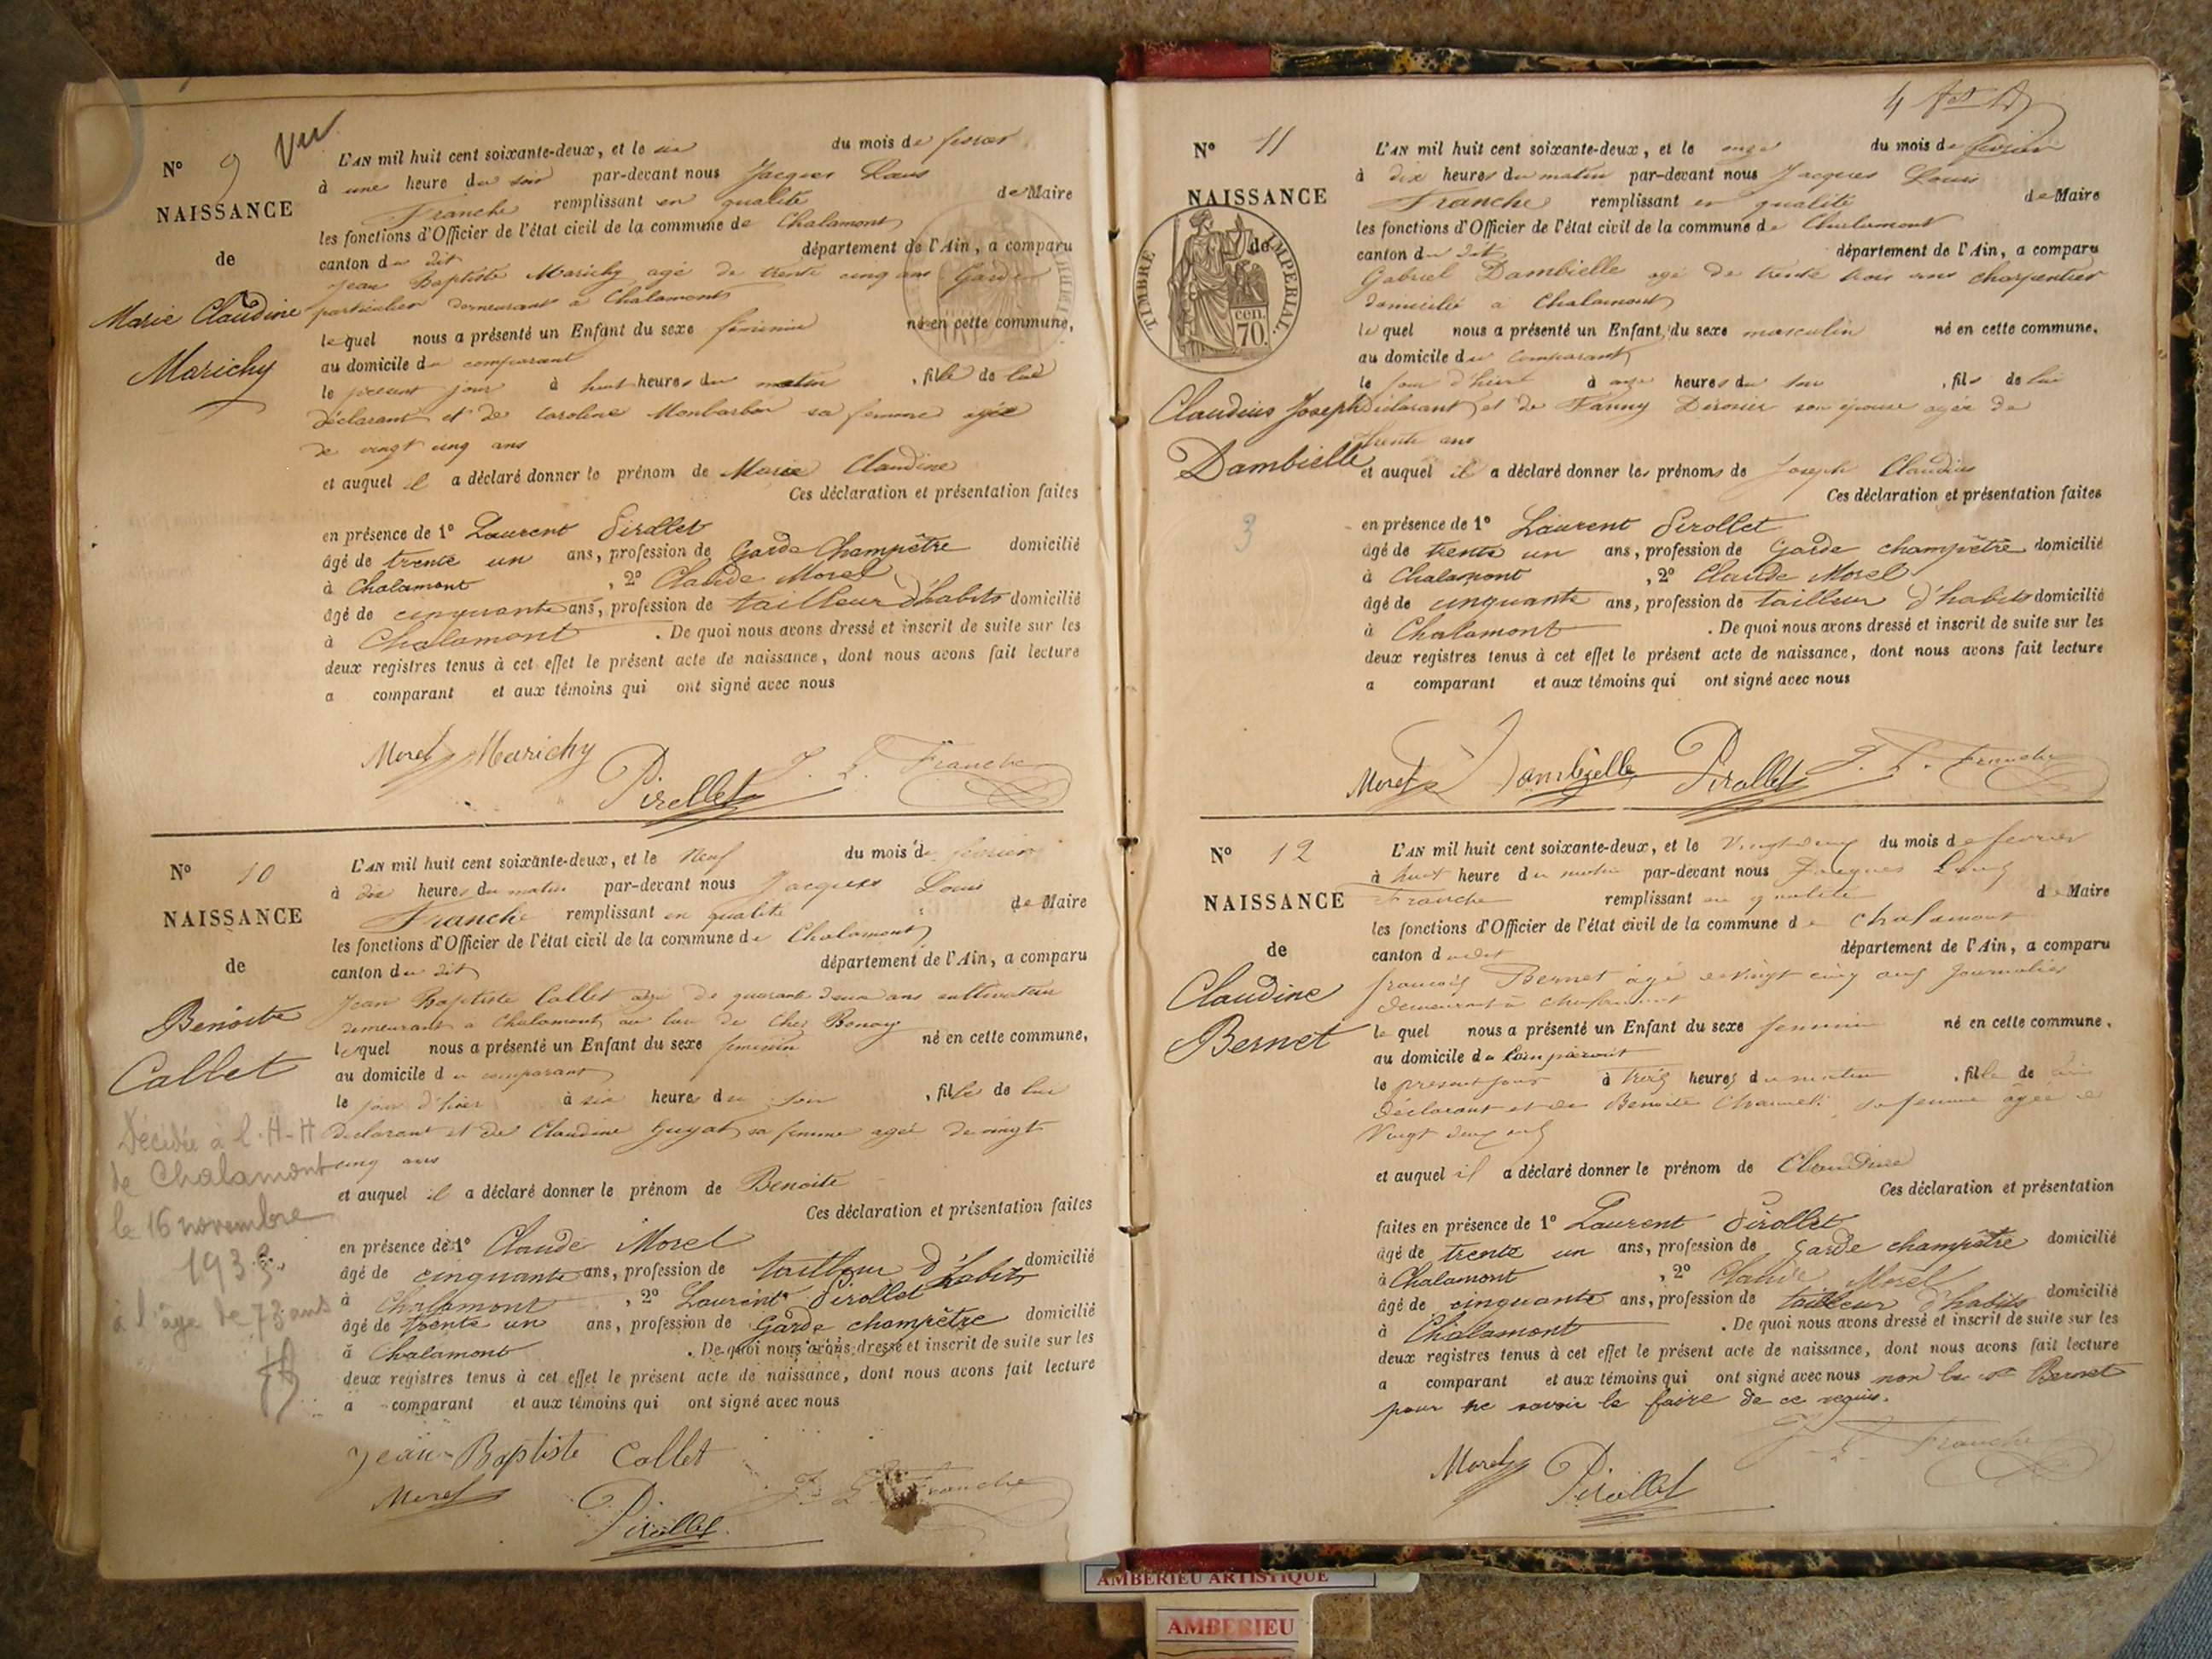 N° 9 Vu
NAISSANCE
de
Marie Claudine
Marichy
L'AN mil huit cent soixante-deux, et le du mois de fevrier
à une heure du soir par-devant nous Jacques Louis
Franche remplissant en qualité de Maire
les fonctions d'Officier de l'état civil de la commune de Chalamont
canton du dit département de l'Ain, a comparu
Jean Baptiste Marichy agé de trente cinq ans Garde
particulier demeurant à Chalamont
lequel nous a présenté un Enfant du sexe féminin né en cette commune,
au domicile du comparant
le présent jour à huit heures du matin , fille de lui
déclarant et de Caroline Monbarbon sa femme agée
de vingt cinq ans
et auquel il a déclaré donner le prénom de Marie Claudine
Ces déclaration et présentation faites
en présence de 1° Laurent Pirollet
âgé de trente un ans, profession de Garde Champêtre domicilié
à Chalamont , 2° Claude Morel
âgé de cinquante ans, profession de tailleur d'habits domicilié
à Chalamont . De quoi nous avons dressé et inscrit de suite sur les
deux registres tenus à cet effet le présent acte de naissance, dont nous avons fait lecture
a comparant et aux témoins qui ont signé avec nous
Morel Marichy Pirollet J. L. Franche
N° 10
NAISSANCE
de
Benoite
Collet
Décédée à l.H-H
de Chalamont
le 16 novembre
193
à l'âge de 73 ans
L'AN mil huit cent soixante-deux, et le Neuf du mois de février
à dix heures du matin par-devant nous Jacques Louis
Franche remplissant en qualité de Maire
les fonctions d'Officier de l'état civil de la commune de Chalamont
canton du dit département de l'Ain, a comparu
Jean Baptiste Collet agé de quarante deux ans cultivateur
demeurant a Chalamont au lieu de Chez Bonay
lequel nous a présenté un Enfant du sexe feminin né en cette commune,
au domicile du comparant
le jour d'hier à six heures du soir , fille de lui
declarant et de Claudine Guyot sa femme agée de vingt
cinq ans
et auquel il a déclaré donner le prénom de Benoite
Ces déclaration et présentation faites
en présence de 1° Claude Morel
âgé de cinquante ans, profession de tailleur d'habits domicilié
à Chalamont , 2° Laurent Pirollet
âgé de trente un ans, profession de Garde champêtre domicilié
à Chalamont . De quoi nous avons dressé et inscrit de suite sur les
deux registres tenus à cet effet le présent acte de naissance, dont nous avons fait lecture
a comparant et aux témoins qui ont signé avec nous
Jean-Baptiste Collet
Morel Pirollet J. L. Franche
N° 11
NAISSANCE
de
TIMBRE IMPERIAL
cen.
70.
Claudius Joseph
Dambielle
3
L'AN mil huit cent soixante-deux, et le onze du mois de février
à dix heures du matin par-devant nous Jacques Louis
Franche remplissant en qualité de Maire
les fonctions d'Officier de l'état civil de la commune de Chalamont
canton du dit département de l'Ain, a comparu
Gabriel Dambielle agé de trente trois ans charpentier
domicilié a Chalamont
lequel nous a présenté un Enfant du sexe masculin né en cette commune.
au domicile du comparant
le jour d'hier à onze heures du soir , fils de lui
déclarant et de Fanny son épouse agée de
trente ans
et auquel il a déclaré donner les prénoms de Joseph Claudius
Ces déclaration et présentation faites
en présence de 1° Laurent Pirollet
âgé de trente un ans, profession de Garde champêtre domicilié
à Chalamont , 2° Claude Morel
âgé de cinquante ans, profession de tailleur d'habits domicilié
à Chalamont . De quoi nous avons dressé et inscrit de suite sur les
deux registres tenus à cet effet le présent acte de naissance, dont nous avons fait lecture
a comparant et aux témoins qui ont signé avec nous
Morel Dambielle Pirollet J. L. Franche
N° 12
NAISSANCE
de
Claudine
Bernet
L'AN mil huit cent soixante-deux, et le Vingt deux du mois de fevrier
à huit heure du matin par-devant nous Jacques Louis
Franche remplissant en qualité de Maire
les fonctions d'Officier de l'état civil de la commune de Chalamont
canton dudit département de l'Ain, a comparu
françois Bernet agé de vingt cinq ans journalier
demeurant à Chalamont
lequel nous a présenté un Enfant du sexe feminin né en cette commune.
au domicile du comparant
le present jour à trois heures du matin , fille de lui
declarant et de Benoite sa femme agée de
vingt deux ans
et auquel il a déclaré donner le prénom de Claudine
Ces déclaration et présentation
faites en présence de 1° Laurent Pirollet
âgé de trente un ans, profession de Garde champêtre domicilié
à Chalamont , 2° Claude Morel
âgé de cinquante ans, profession de tailleur d'habits domicilié
à Chalamont . De quoi nous avons dressé et inscrit de suite sur les
deux registres tenus à cet effet le présent acte de naissance, dont nous avons fait lecture
a comparant et aux témoins qui ont signé avec nous non le dt Bernet
pour ne savoir le faire de ce requis.
Morel Pirollet J. L. Franche
AMBERIEU ARTISTIQUE
AMBERIEU